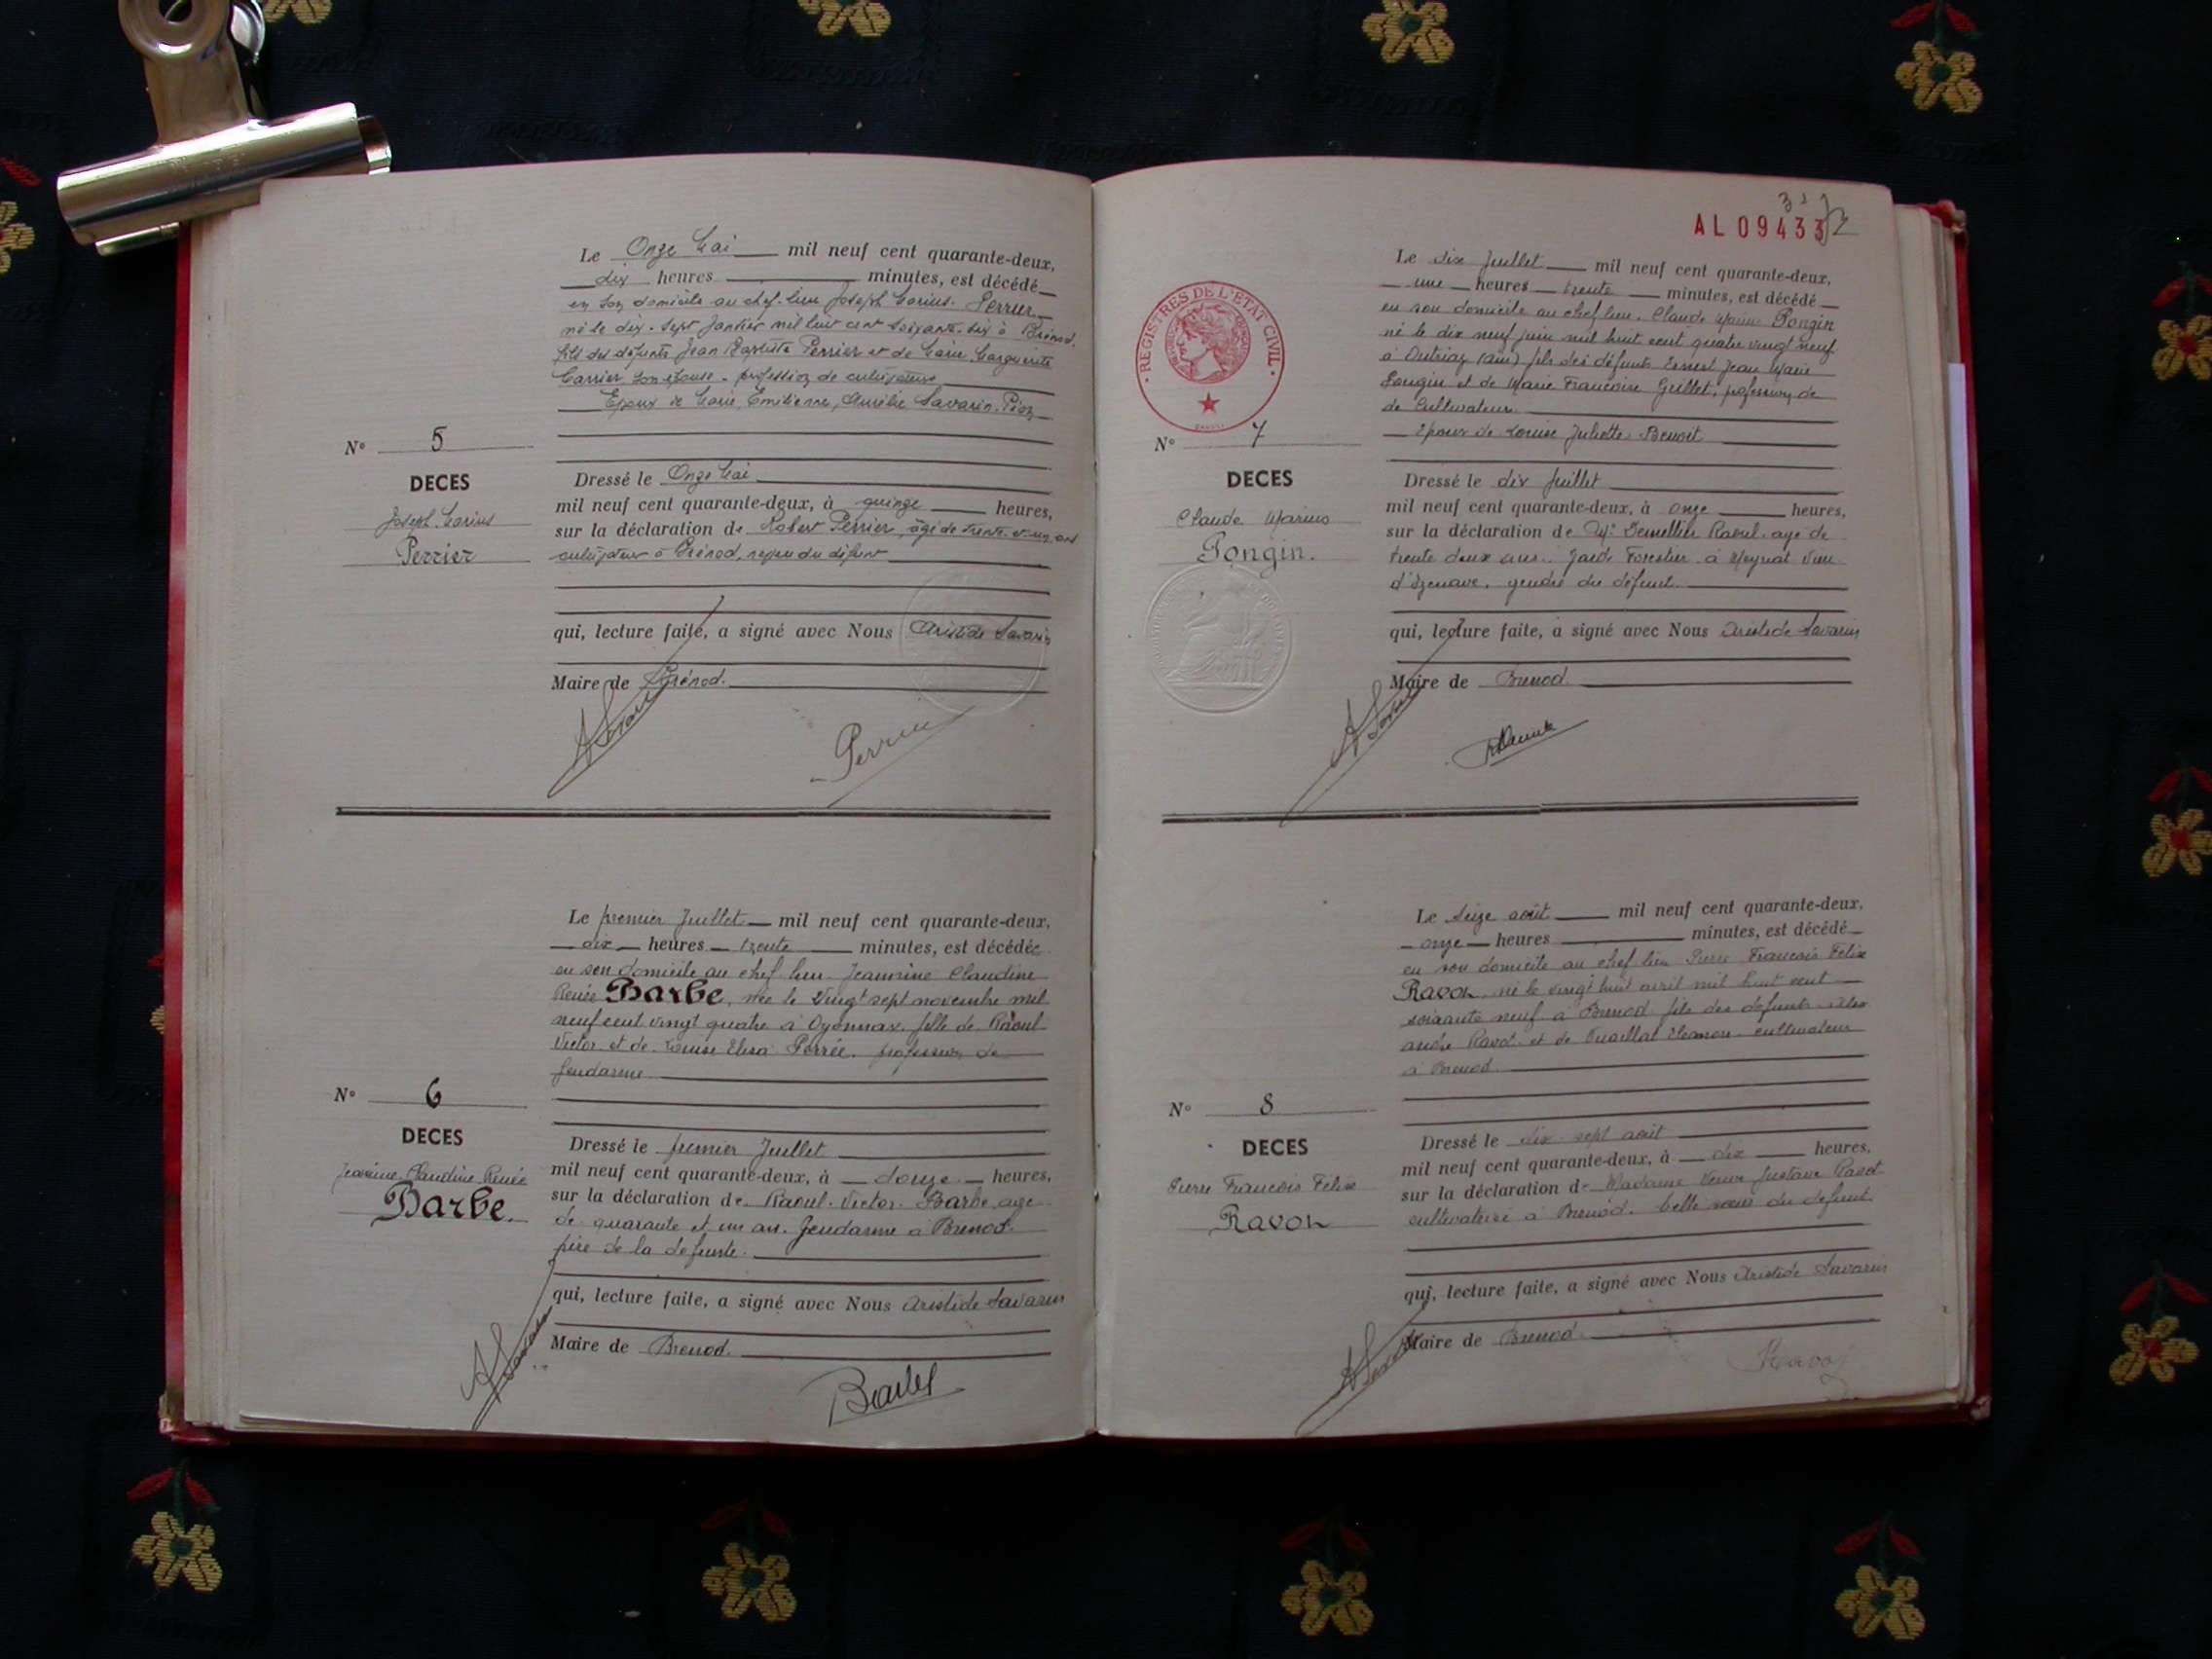 Le Onze Mai mil neuf cent quarante-deux,
dix heures minutes, est décédé
en son domicile au chef-lieu Joseph Marius Perrier
né le dix-sept Janvier mil huit cent soixante-six à Brénod,
fils des défunts Jean Baptiste Perrier et de Marie Marguerite
Carrier son épouse - profession de cultivateur
Epoux de Marie, Emilienne, Aurélie Savarin-
N° 5
DECES
Joseph Marius
Perrier
Dressé le Onze Mai
mil neuf cent quarante-deux, à quinze heures,
sur la déclaration de Robert Perrier, âgé de trente et un ans
cultivateur à Brénod, neveu du défunt
qui, lecture faite, a signé avec Nous Aristide Savarin
Maire de Brénod.
A Savarin
Perrier
Le premier Juillet mil neuf cent quarante-deux,
dix heures trente minutes, est décédée
en son domicile au chef lieu Jeannine Claudine
Renée Barbe, née le vingt sept novembre mil
neuf cent vingt quatre à Oyonnax fille de Raoul
Victor et de Louise Elisa Perrée. profession de
gendarme
N° 6
DECES
Jeannine Claudine Renée
Barbe.
Dressé le premier Juillet
mil neuf cent quarante-deux, à douze heures,
sur la déclaration de Raoul Victor Barbe age
de quarante et un an. Gendarme à Brenod.
père de la defunte.
qui, lecture faite, a signé avec Nous Aristide Savarin
Maire de Brenod.
A Savarin
Barbe
AL 09433
REGISTRES DE L'ETAT CIVIL
Le dix Juillet mil neuf cent quarante-deux,
une heures trente minutes, est décédé
en son domicile au chef lieu. Claude Marius Pongin
né le dix neuf juin mil huit cent quatre vingt neuf
à Outriaz (Ain) fils des défunts Ernest Jean Marie
Pongin et de Marie Francoise Grillet, profession de
de Cultivateur
Epoux de Louise Juliette Benoit
N° 7
DECES
Claude Marius
Pongin.
Dressé le dix Juillet
mil neuf cent quarante-deux, à onze heures,
sur la déclaration de Mr Raoul age de
trente deux ans. Garde Forestier à Meyriat
d'Izenave, gendre du défunt.
qui, lecture faite, a signé avec Nous Aristide Savarin
Maire de Brenod
A Savarin
Le seize août mil neuf cent quarante-deux,
onze heures minutes, est décédé
en son domicile au chef lieu Pierre Francois Félix
Ravot, né le vingt huit avril mil huit cent
soixante neuf à Brenod fils des defunts
andré Ravot et de Eleanore cultivateur
à Brenod.
N° 8
DECES
Pierre Francois Félix
Ravot
Dressé le dix sept août
mil neuf cent quarante-deux, à dix heures,
sur la déclaration de Madame Veuve Gustave Ravot
cultivatrice à Brenod. belle soeur du defunt.
qui, lecture faite, a signé avec Nous Aristide Savarin
Maire de Brenod.
A Savarin
Ravot